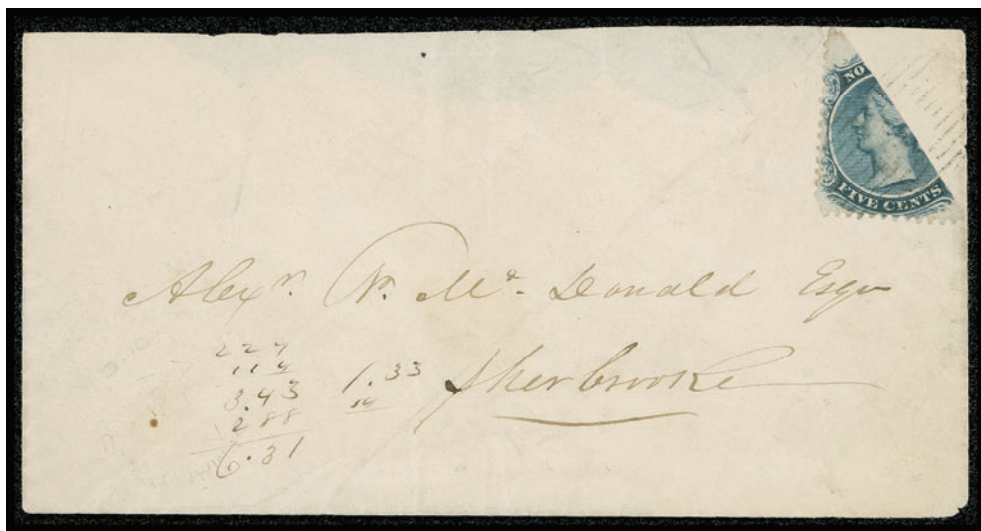 NO
FIVE CENTS
Alexr. P. Mc. Donald Esqr
Sherbrooke
227
114
3.43
288
6.31
1.33
14